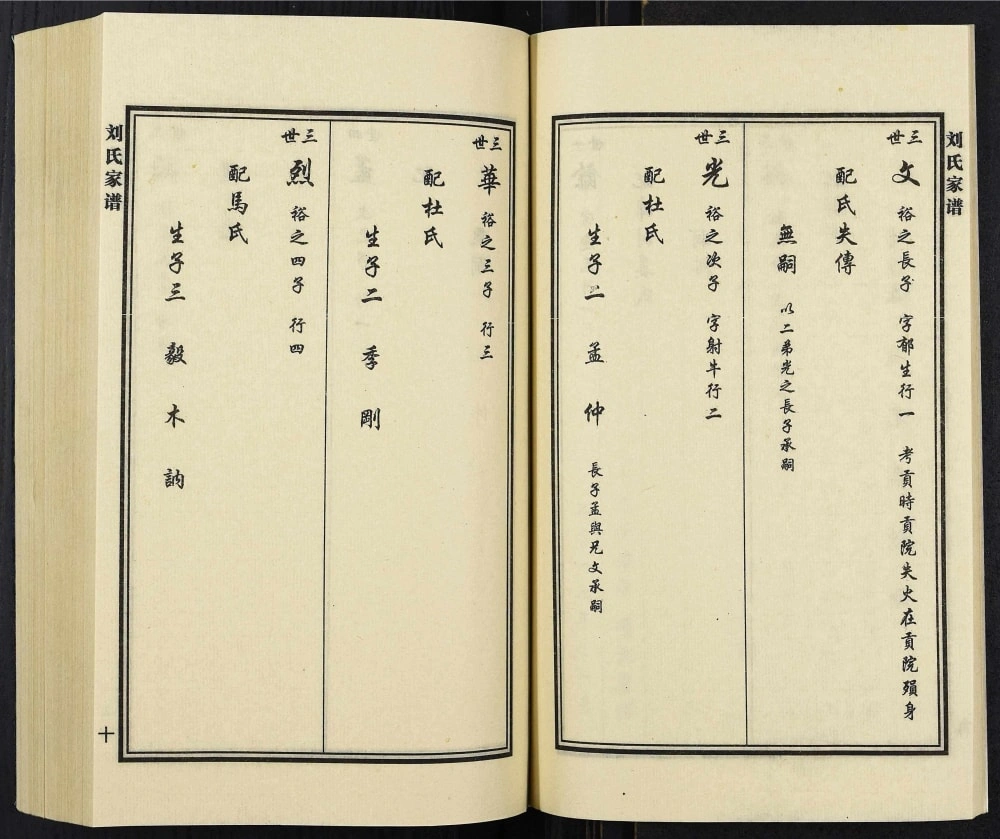 刘氏家谱
三世
文 裕之長子 字郁生行一 考貢時貢院失火在貢院殞身
配氏失傳
無嗣 以二弟光之長子承嗣
三世
光 裕之次子 字射牛行二
配杜氏
生子二 孟 仲 長子孟與兄文承嗣
三世
華 裕之三子 行三
配杜氏
生子二 季 剛
三世
烈 裕之四子 行四
配馬氏
生子三 毅 木 訥
刘氏家谱
十